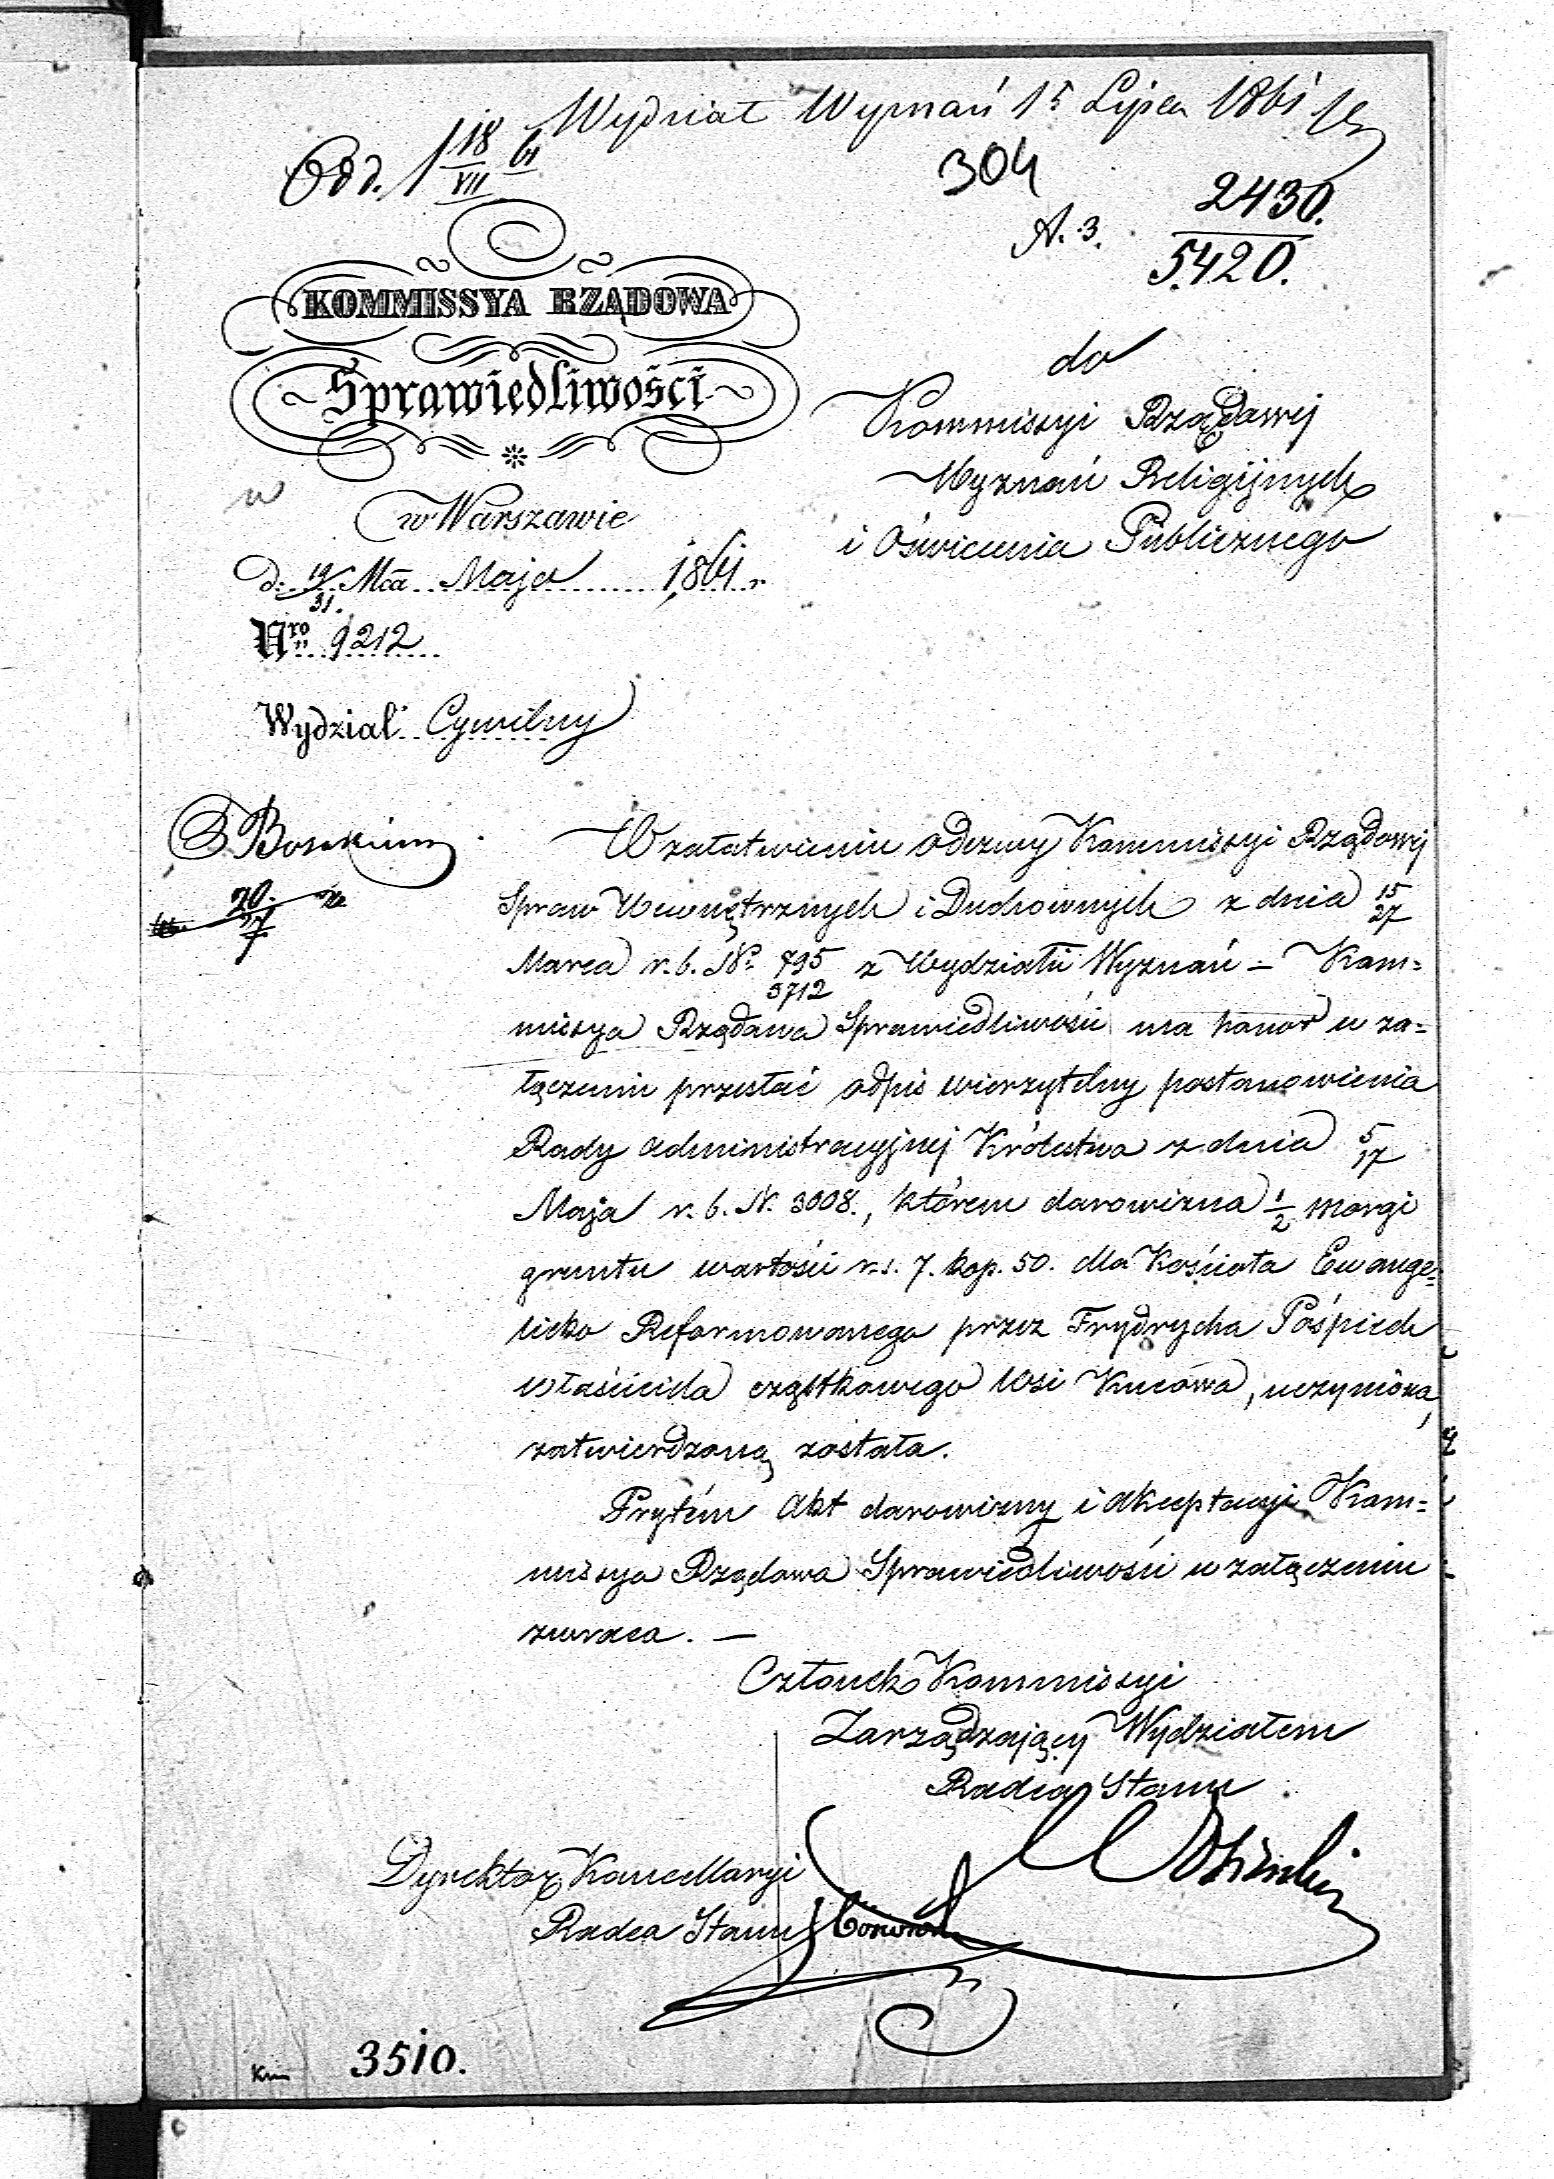 Wydział Wyznań 15 Lipca 1861
Odd. 1 18/VII 61
304
A. 3. 2430.
5420.
KOMMISSYA RZĄDOWA
Sprawiedliwości
w Warszawie
d. 19/31. Mca Maja 1861 r.
Nro 9212
Wydział Cywilny
do
Kommissyi Rządowej
Wyznań Religijnych
i Oświecenia Publicznego
20./27
7.
W załatwieniu odezwy Kommissyi Rządowej
Spraw Wewnętrznych i Duchownych z dnia 15/27
Marca r. b. Nº 795/3712 z Wydziału Wyznań – Kom=
missya Rządowa Sprawiedliwości ma honor w za=
łączeniu przesłać odpis wierzytelny postanowienia
Rady Administracyjnej Królestwa z dnia 5/17
Maja r. b. N. 3008., którem darowizna 1/2 morgi
gruntu wartości r.s. 7. kop. 50. dla Kościoła Ewange=
licko Reformowanego przez Frydrycha Pośpiech
właściciela cząstkowego wsi Kucowa, uczyniona,
zatwierdzoną została.
Przytém Akt darowizny i akceptacyi Kom=
missya Rządowa Sprawiedliwości w załączeniu
zwraca. —
Członek Kommissyi
Zarządzający Wydziałem
Radca Stanu
Dyrektor Kancellaryi
Radca Stanu
3510.